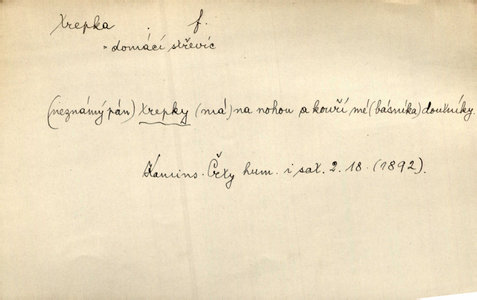 trepka f.
= domácí střevíc
(neznámý pán) trepky (má) na nohou a kouří mé (básníka) doutníky.
Kamins. Črty hum. i sat. 2. 18. (1892).